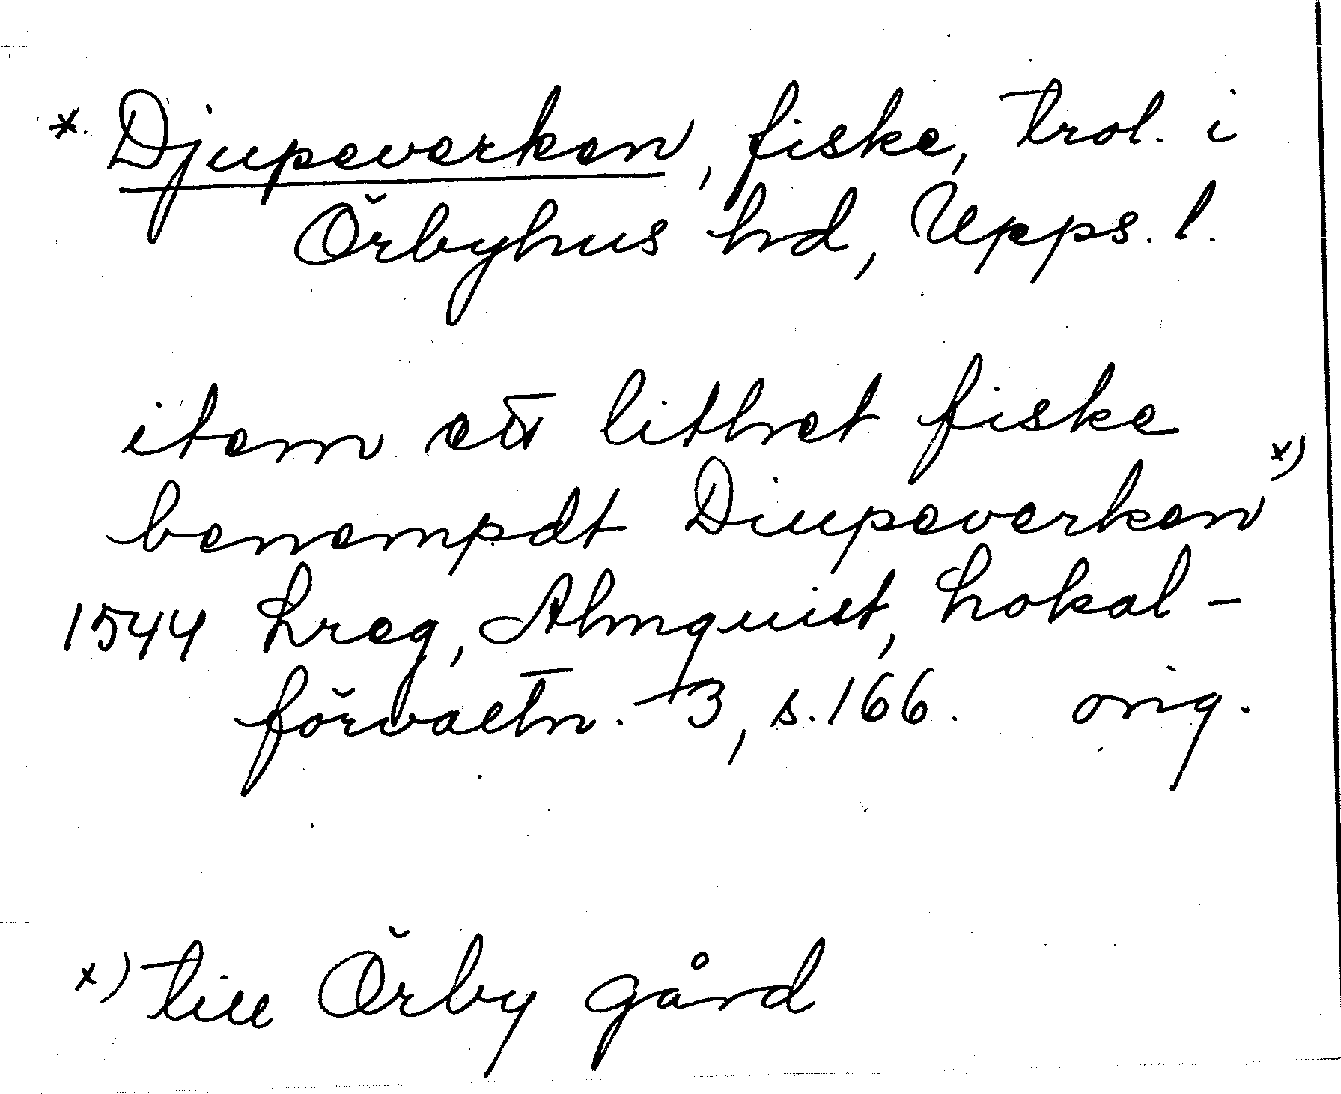 * Djupeverken, fiske, trol. i
Örbyhus hd, Upps. l.
item ett lithet fiske
benempdt Diupeverken x)
1544 Lreg, Almquist, Lokal-
förvaltn. 3, s. 166. orig.
x) till Örby gård